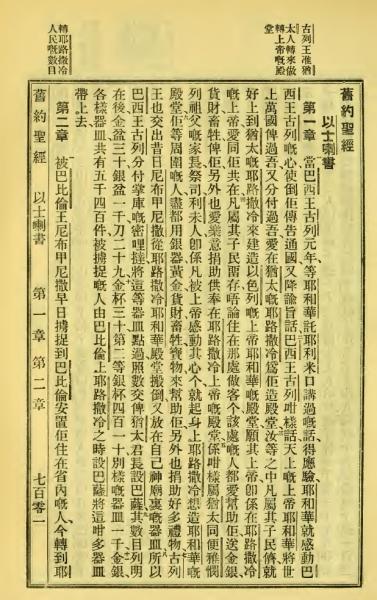 古列王准猶
太人轉來做
轉上帝嘅殿
堂
轉耶路撒冷
人民嘅數目
舊約聖經
以士喇書
第一章 當巴西王古列元年等耶和華託耶利米口講過嘅話得應驗耶和華就感動巴
西王古列嘅心使倒佢傳告通國又降諭旨話巴西王古列咁樣話天上嘅上帝耶和華將世
上萬國俾過吾又分付過吾愛在猶太嘅耶路撒冷爲佢造殿堂汝等之中凡屬其子民儕就
好上到猶太嘅耶路撒冷來建造以色列嘅上帝耶和華嘅殿堂願其上帝卽係在耶路撒冷
嘅上帝愛同佢共在凡屬其子民畱存唔論住在那處做客个該處嘅人都愛幫助佢送金銀
貨財畜牲俾佢另外也愛樂意捐助供奉在耶路撒冷上帝嘅殿堂係咁樣屬猶太同便雅憫
列祖父嘅家長祭司利未人卽係凡被上帝感動其心个就起身上耶路撒冷想造耶和華嘅
殿堂佢等周圍嘅人盡都用銀器黃金貨財畜牲寶物來幫助佢另外也捐助好多禮物古列
王也交出昔日尼布甲尼撒從耶路撒冷耶和華殿堂搬倒又放在自己神廟裏嘅器皿所以
巴西王古列分付掌庫嘅密哩撻將這等器皿點過照數交俾猶太君長設巴薩其數目列明
在後金盆三十銀盆一千刀二十九金杯三十第二等銀杯四百一十別樣嘅器皿一千金銀
各樣器皿共有五千四百件被擄捉嘅人由巴比倫上耶路撒冷之時設巴薩將這咁多器皿
帶上去、
第二章 被巴比倫王尼布甲尼撒早日擄捉到巴比倫安置佢住在省內嘅人今轉到耶
舊約聖經 以士喇書 第一章 第二章 七百零一